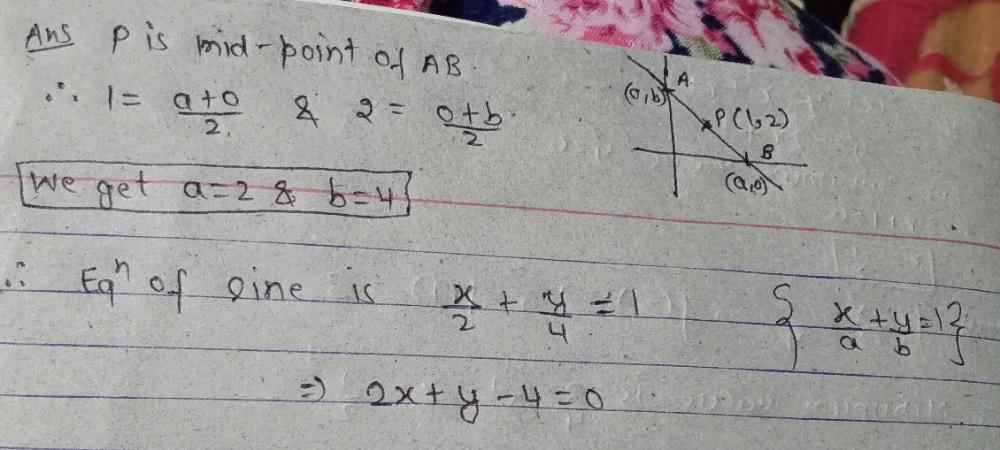 Ans P is mid-point of AB.
∴ 1 = a+0/2. & 2 = 0+b/2.
A
(0,b)
P(1,2)
B
(a,0)
We get a=2 & b=4
∴ Eqⁿ of line is x/2 + y/4 = 1 { x/a + y/b = 1 }
⇒ 2x+y-4=0